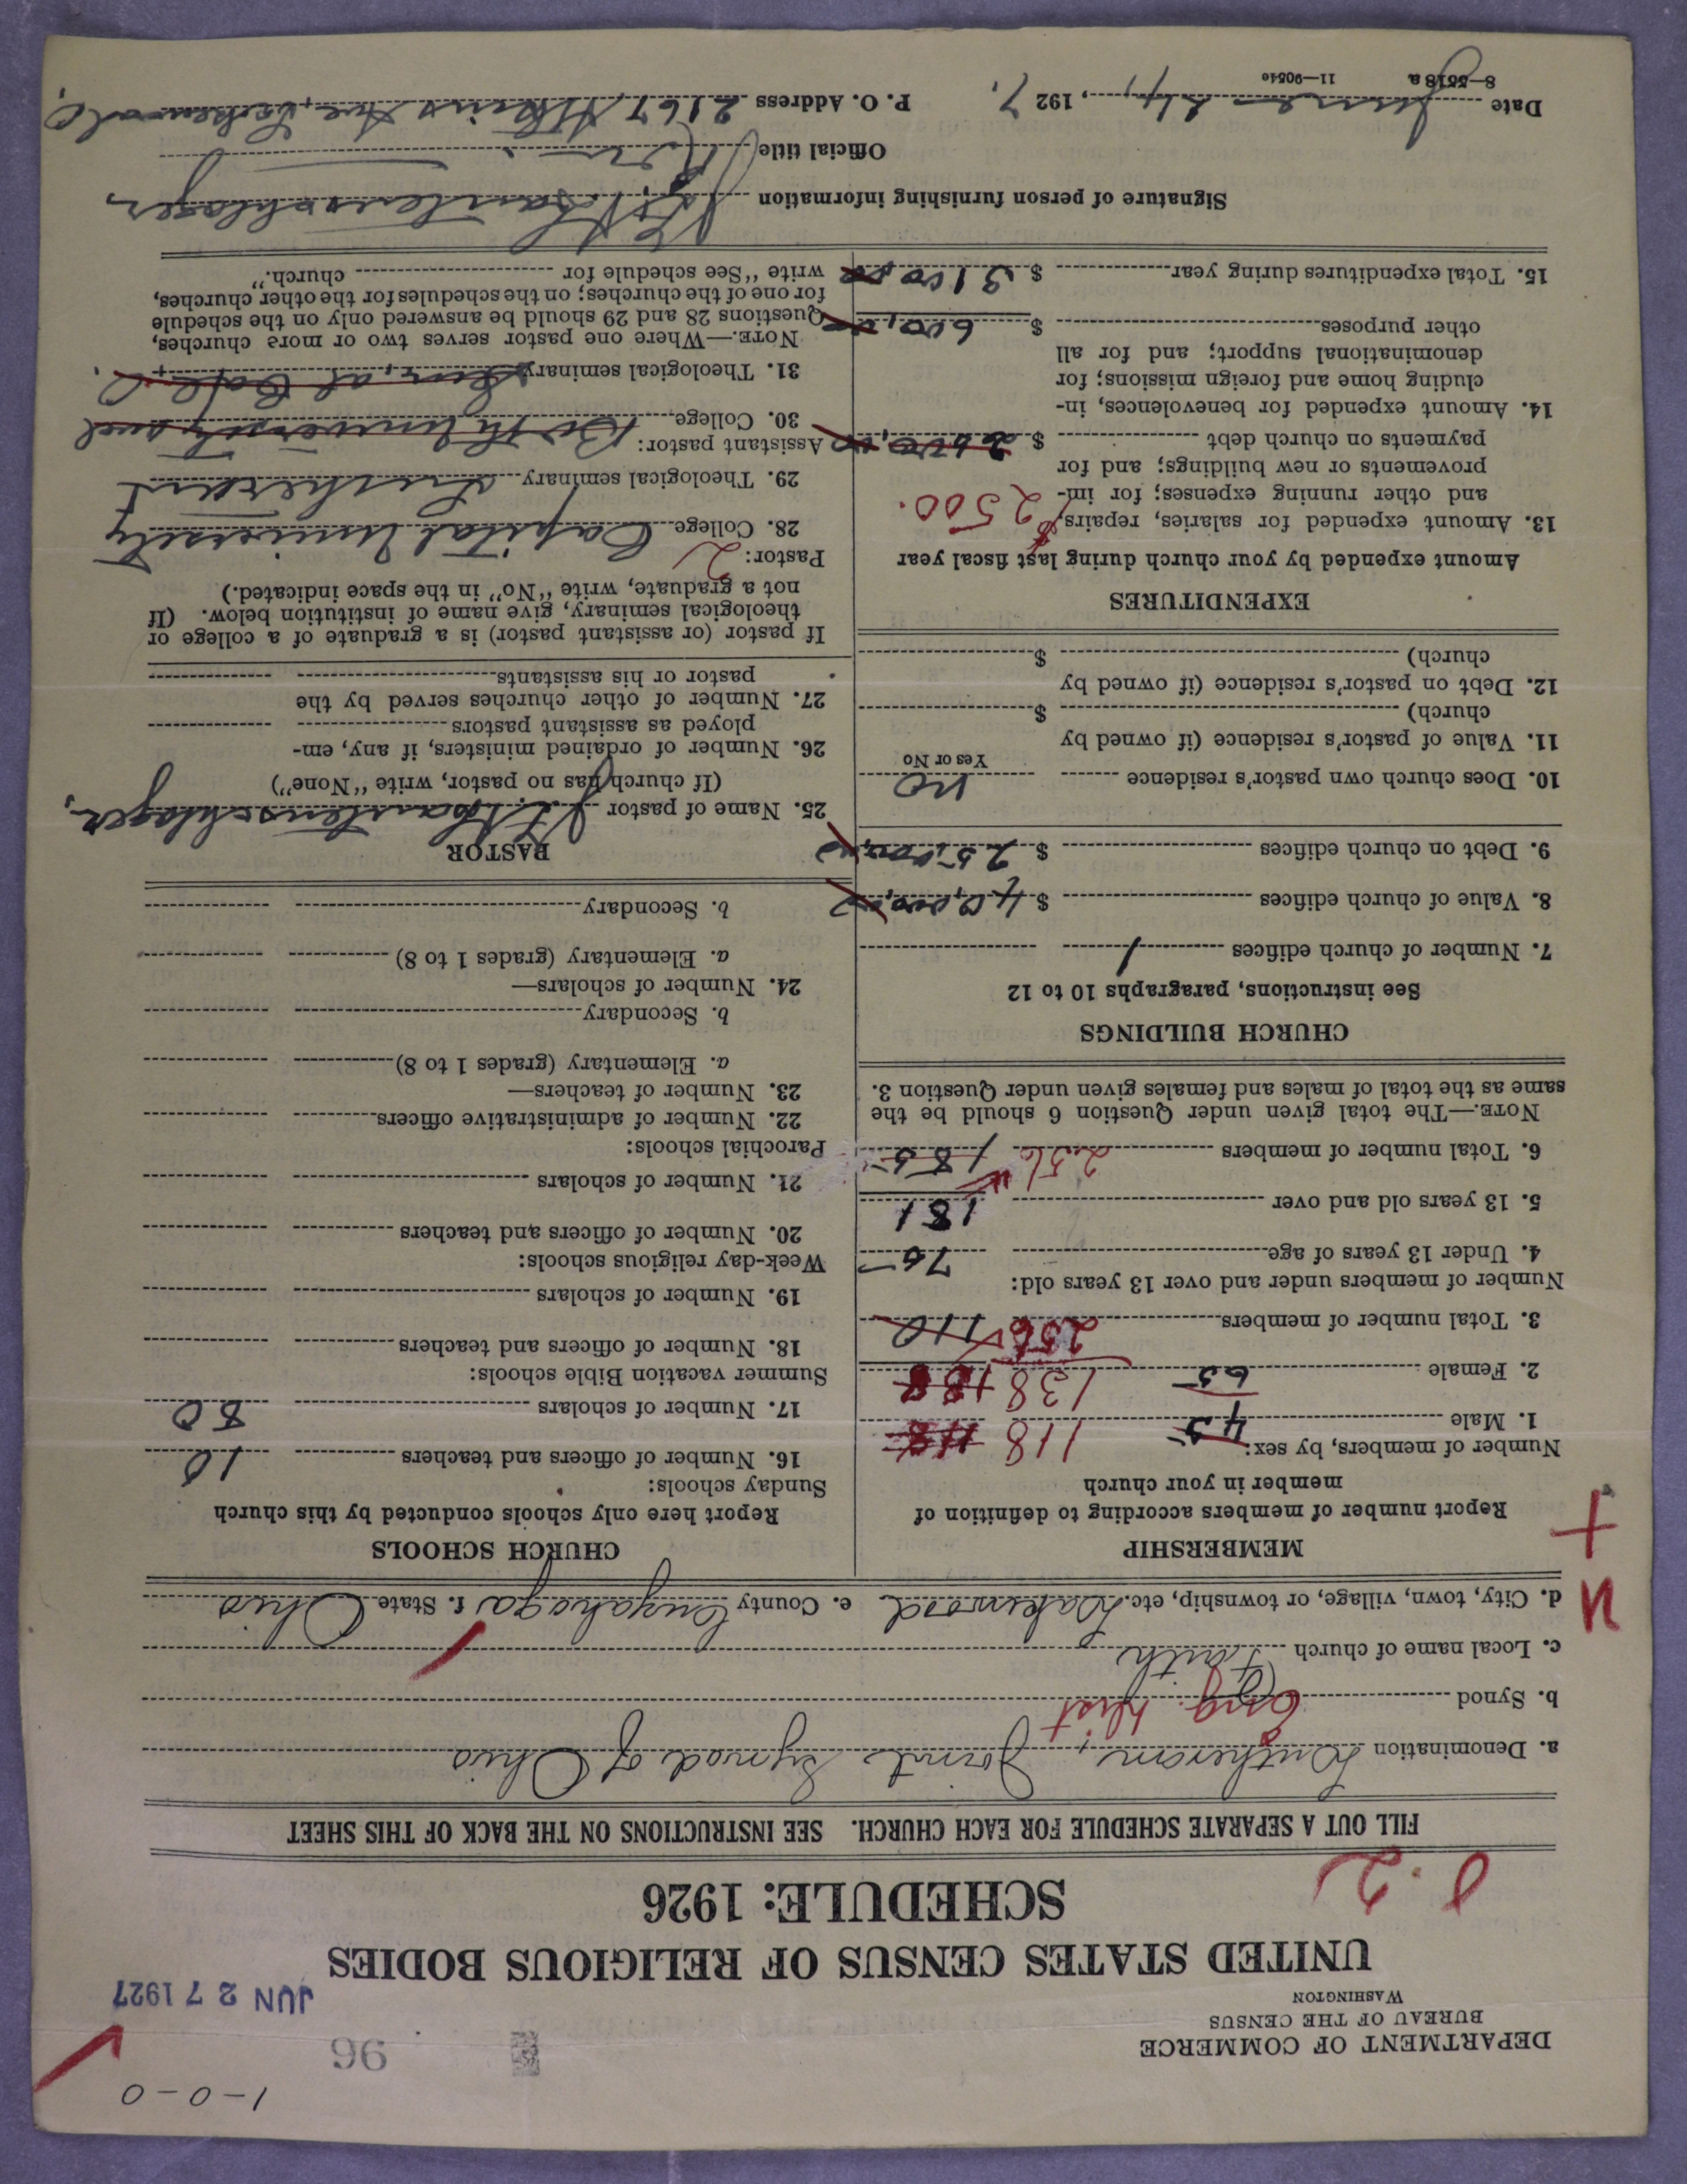 1-0-0
DEPARTMENT OF COMMERCE
BUREAU OF THE CENSUS
WASHINGTON
96
JUN 27 1927
UNITED STATES CENSUS OF RELIGIOUS BODIES
SCHEDULE: 1926
FILL OUT A SEPARATE SCHEDULE FOR EACH CHURCH. SEE INSTRUCTIONS ON THE BACK OF THIS SHEET
a. Denomination Lutheran, Joint Synod of Ohio
b. Synod Eng. Dist
c. Local name of church Faith
d. City, town, village, or township, etc. Lakewood e. County Cuyahoga f. State Ohio
MEMBERSHIP
Report number of members according to definition of
member in your church
Number of members, by sex:
1. Male 45 118 118
2. Female 65 138 138
3. Total number of members 256 110
Number of members under and over 13 years old:
4. Under 13 years of age 75
5. 13 years old and over 181
6. Total number of members 256 185
NOTE.—The total given under Question 6 should be the
same as the total of males and females given under Question 3.
CHURCH BUILDINGS
See instructions, paragraphs 10 to 12
7. Number of church edifices 1
8. Value of church edifices $ 40,000,00
9. Debt on church edifices $ 25,000,00
10. Does church own pastor's residence no
Yes or No
11. Value of pastor's residence (if owned by
church) $
12. Debt on pastor's residence (if owned by
church) $
EXPENDITURES
Amount expended by your church during last fiscal year
13. Amount expended for salaries, repairs, $2500.
and other running expenses; for im-
provements or new buildings; and for
payments on church debt $ 2500,00
14. Amount expended for benevolences, in-
cluding home and foreign missions; for
denominational support; and for all
other purposes $ 600,00
15. Total expenditures during year $ 3100,00
CHURCH SCHOOLS
Report here only schools conducted by this church
Sunday schools:
16. Number of officers and teachers 10
17. Number of scholars 80
Summer vacation Bible schools:
18. Number of officers and teachers
19. Number of scholars
Week-day religious schools:
20. Number of officers and teachers
21. Number of scholars
Parochial schools:
22. Number of administrative officers
23. Number of teachers—
a. Elementary (grades 1 to 8)
b. Secondary
24. Number of scholars—
a. Elementary (grades 1 to 8)
b. Secondary
PASTOR
25. Name of pastor J. H. Lautenschlager,
(If church has no pastor, write "None")
26. Number of ordained ministers, if any, em-
ployed as assistant pastors
27. Number of other churches served by the
pastor or his assistants
If pastor (or assistant pastor) is a graduate of a college or
theological seminary, give name of institution below. (If
not a graduate, write "No" in the space indicated.)
Pastor: 2
28. College Capital University
29. Theological seminary Lutheran
Assistant pastor:
30. College Both University and
31. Theological seminary Sem. at Cap. O.
NOTE.—Where one pastor serves two or more churches,
Questions 28 and 29 should be answered only on the schedule
for one of the churches; on the schedules for the other churches,
write "See schedule for church."
Signature of person furnishing information J. H. Lautenschlager
Official title Rev.
Date June 24, 1927. P. O. Address 2167 Atkins Ave, Lakewood, O.
8—5518a 11—9054c